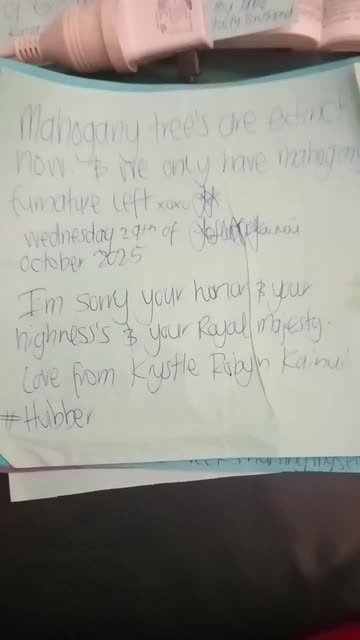 my like
fully involved
Mahogany tree's are extinct
now. & We only have mahogany
furnature left xoxo
wednesday 29th of Kainui
october 2025
I'm sorry your honor & your
highness's & your Royal majesty.
Love from Krystle Robyn Kainui
#Hubber